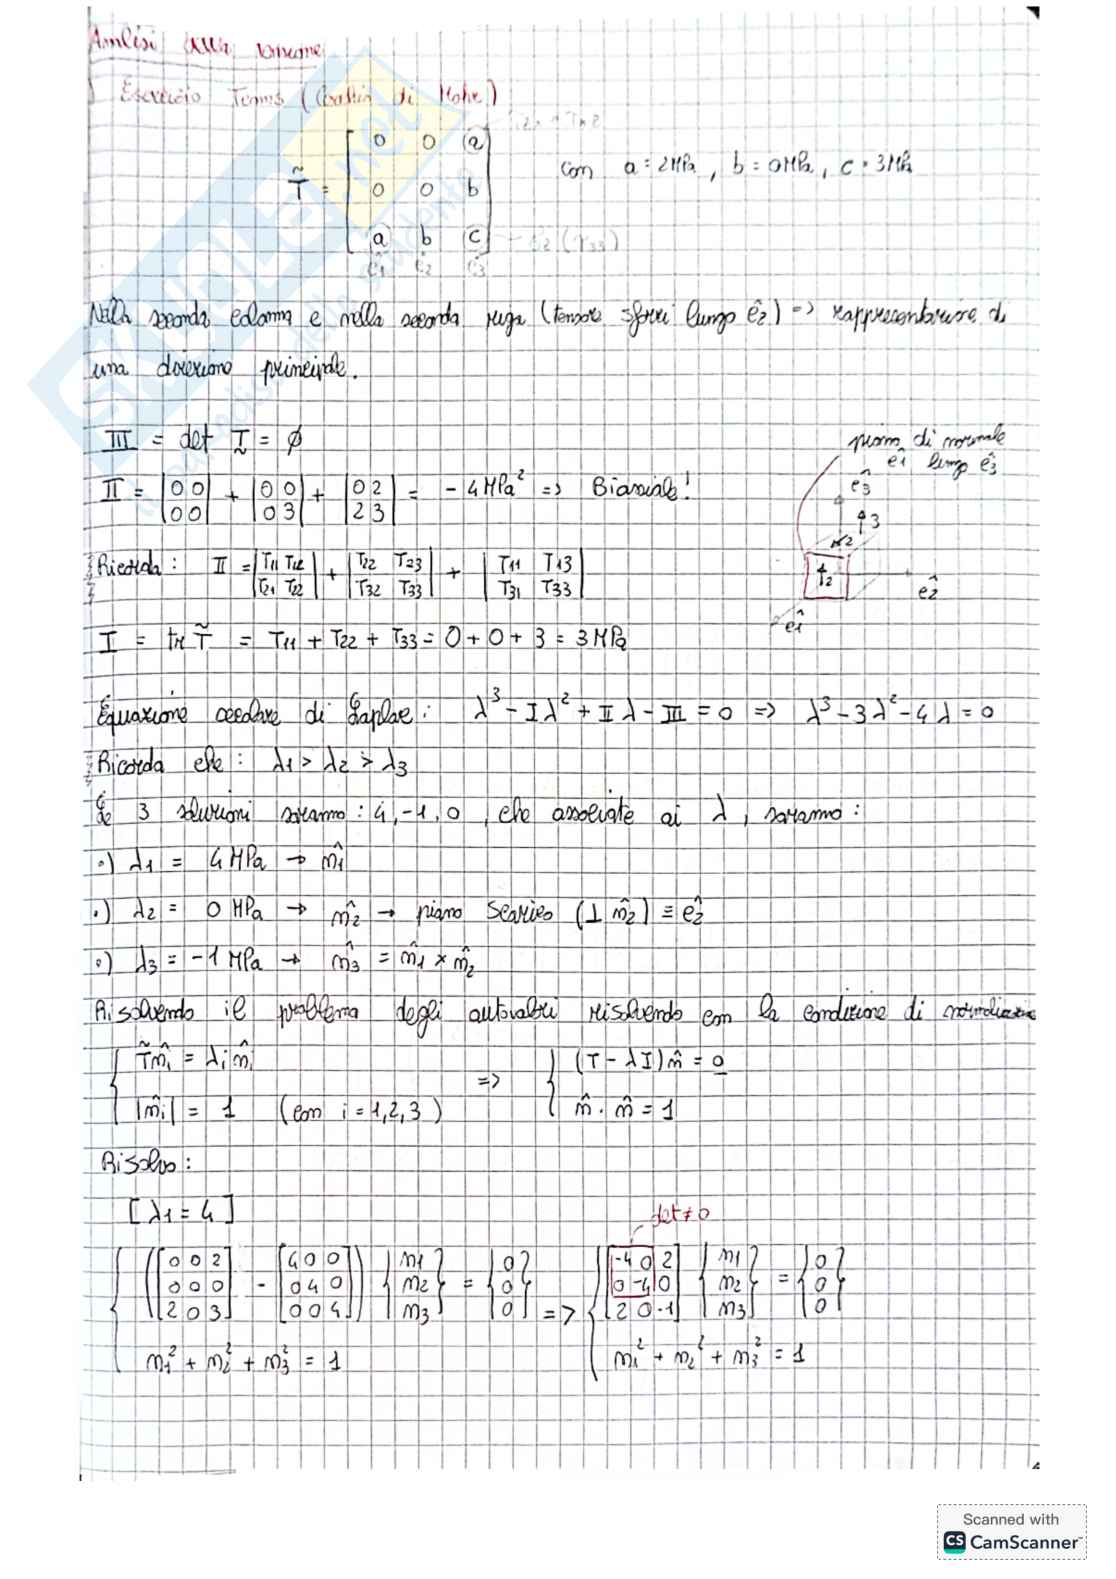 Analisi della tensione
Esercizio Tenns (Cerchi di Mohr)
T̃ = [0 0 a; 0 0 b; a b c] con a = 2MPa, b = 0MPa, c = 3MPa
ê1 ê2 ê3
Nella seconda colonna e nella seconda riga (tensore sforzi lungo ê2) => rappresentazione di
una direzione principale.
III = det T = ø
II = |0 0; 0 0| + |0 0; 0 3| + |0 2; 2 3| = - 4 MPa² => Biassiale!
piano di normale
ê1 lungo ê3
ê3
3
2
2
ê2
ê1
Ricorda: II = |T11 T12; T21 T22| + |T22 T23; T32 T33| + |T11 T13; T31 T33|
I = tr T̃ = T11 + T22 + T33 = 0 + 0 + 3 = 3 MPa
Equazione secolare di Laplace: λ³ - I λ² + II λ - III = 0 => λ³ - 3λ² - 4λ = 0
Ricorda che: λ1 > λ2 > λ3
Le 3 soluzioni saranno: 4, -1, 0, che associate ai λ, saranno:
•) λ1 = 4 MPa → n̂1
•) λ2 = 0 MPa → n̂2 → piano Scarico (⊥ n̂2) ≡ ê2
•) λ3 = -1 MPa → n̂3 = n̂1 × n̂2
Risolvendo il problema degli autovalori risolvendo con la condizione di normalizzazione
{ T̃n̂i = λi n̂i => { (T - λI) n̂ = 0
|n̂i| = 1 (con i = 1,2,3) n̂ · n̂ = 1
Risolvo:
[λ1 = 4]
det ≠ 0
{ ([0 0 2; 0 0 0; 2 0 3] - [4 0 0; 0 4 0; 0 0 4]) {n1; n2; n3} = {0; 0; 0} => { [-4 0 2; 0 -4 0; 2 0 -1] {n1; n2; n3} = {0; 0; 0}
n1² + n2² + n3² = 1 n1² + n2² + n3² = 1
Scanned with
CS CamScanner